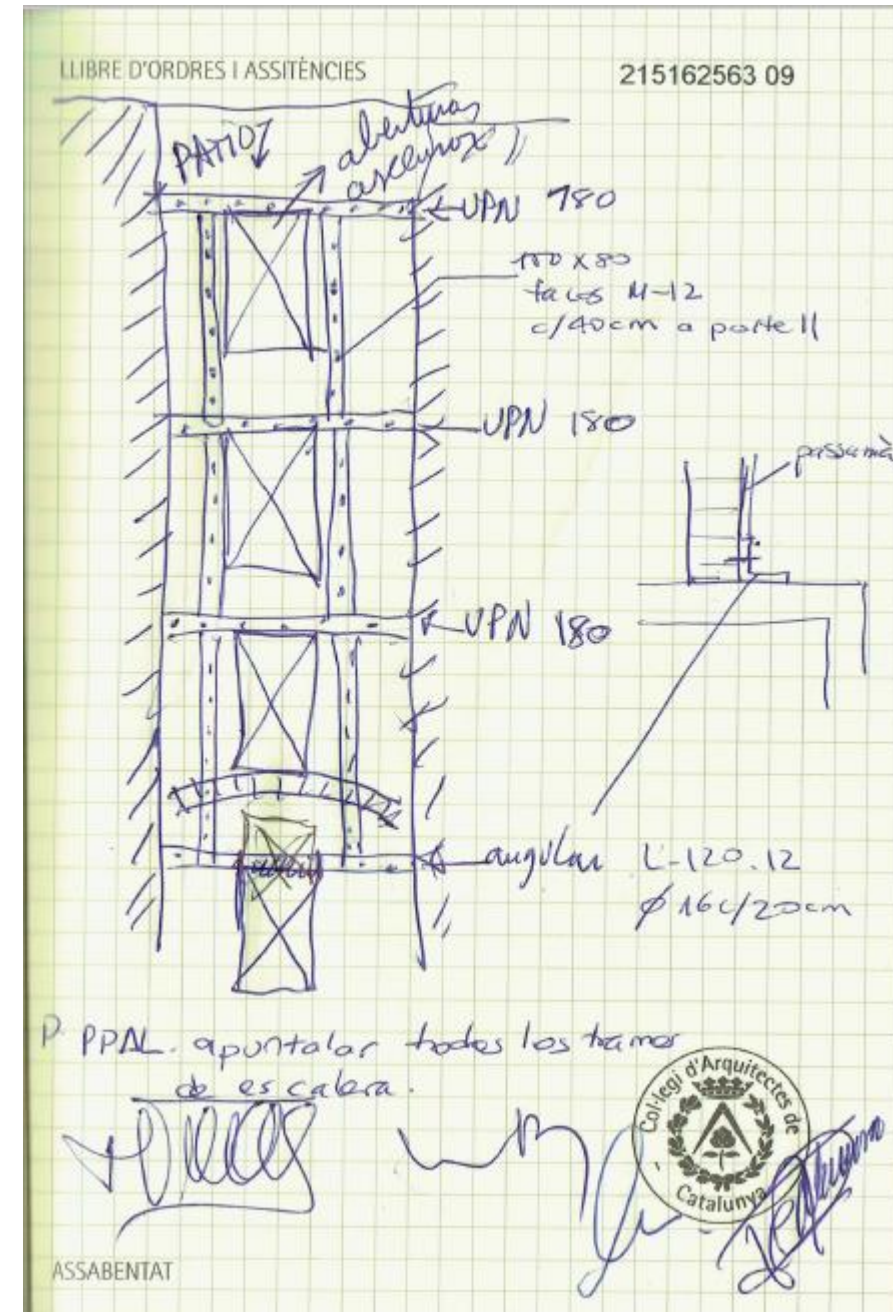 LLIBRE D'ORDRES I ASSITÈNCIES
215162563 09
PATIO
aberturas
ascensor
UPN 180
100 x 80
tacos M-12
c/40cm a parte 11
UPN 180
passamà
UPN 180
angular L-120.12
ø 16 c/20cm
P. PPAL. apuntalar todos los tramos
de escalera.
Col·legi d'Arquitectes de Catalunya
ASSABENTAT